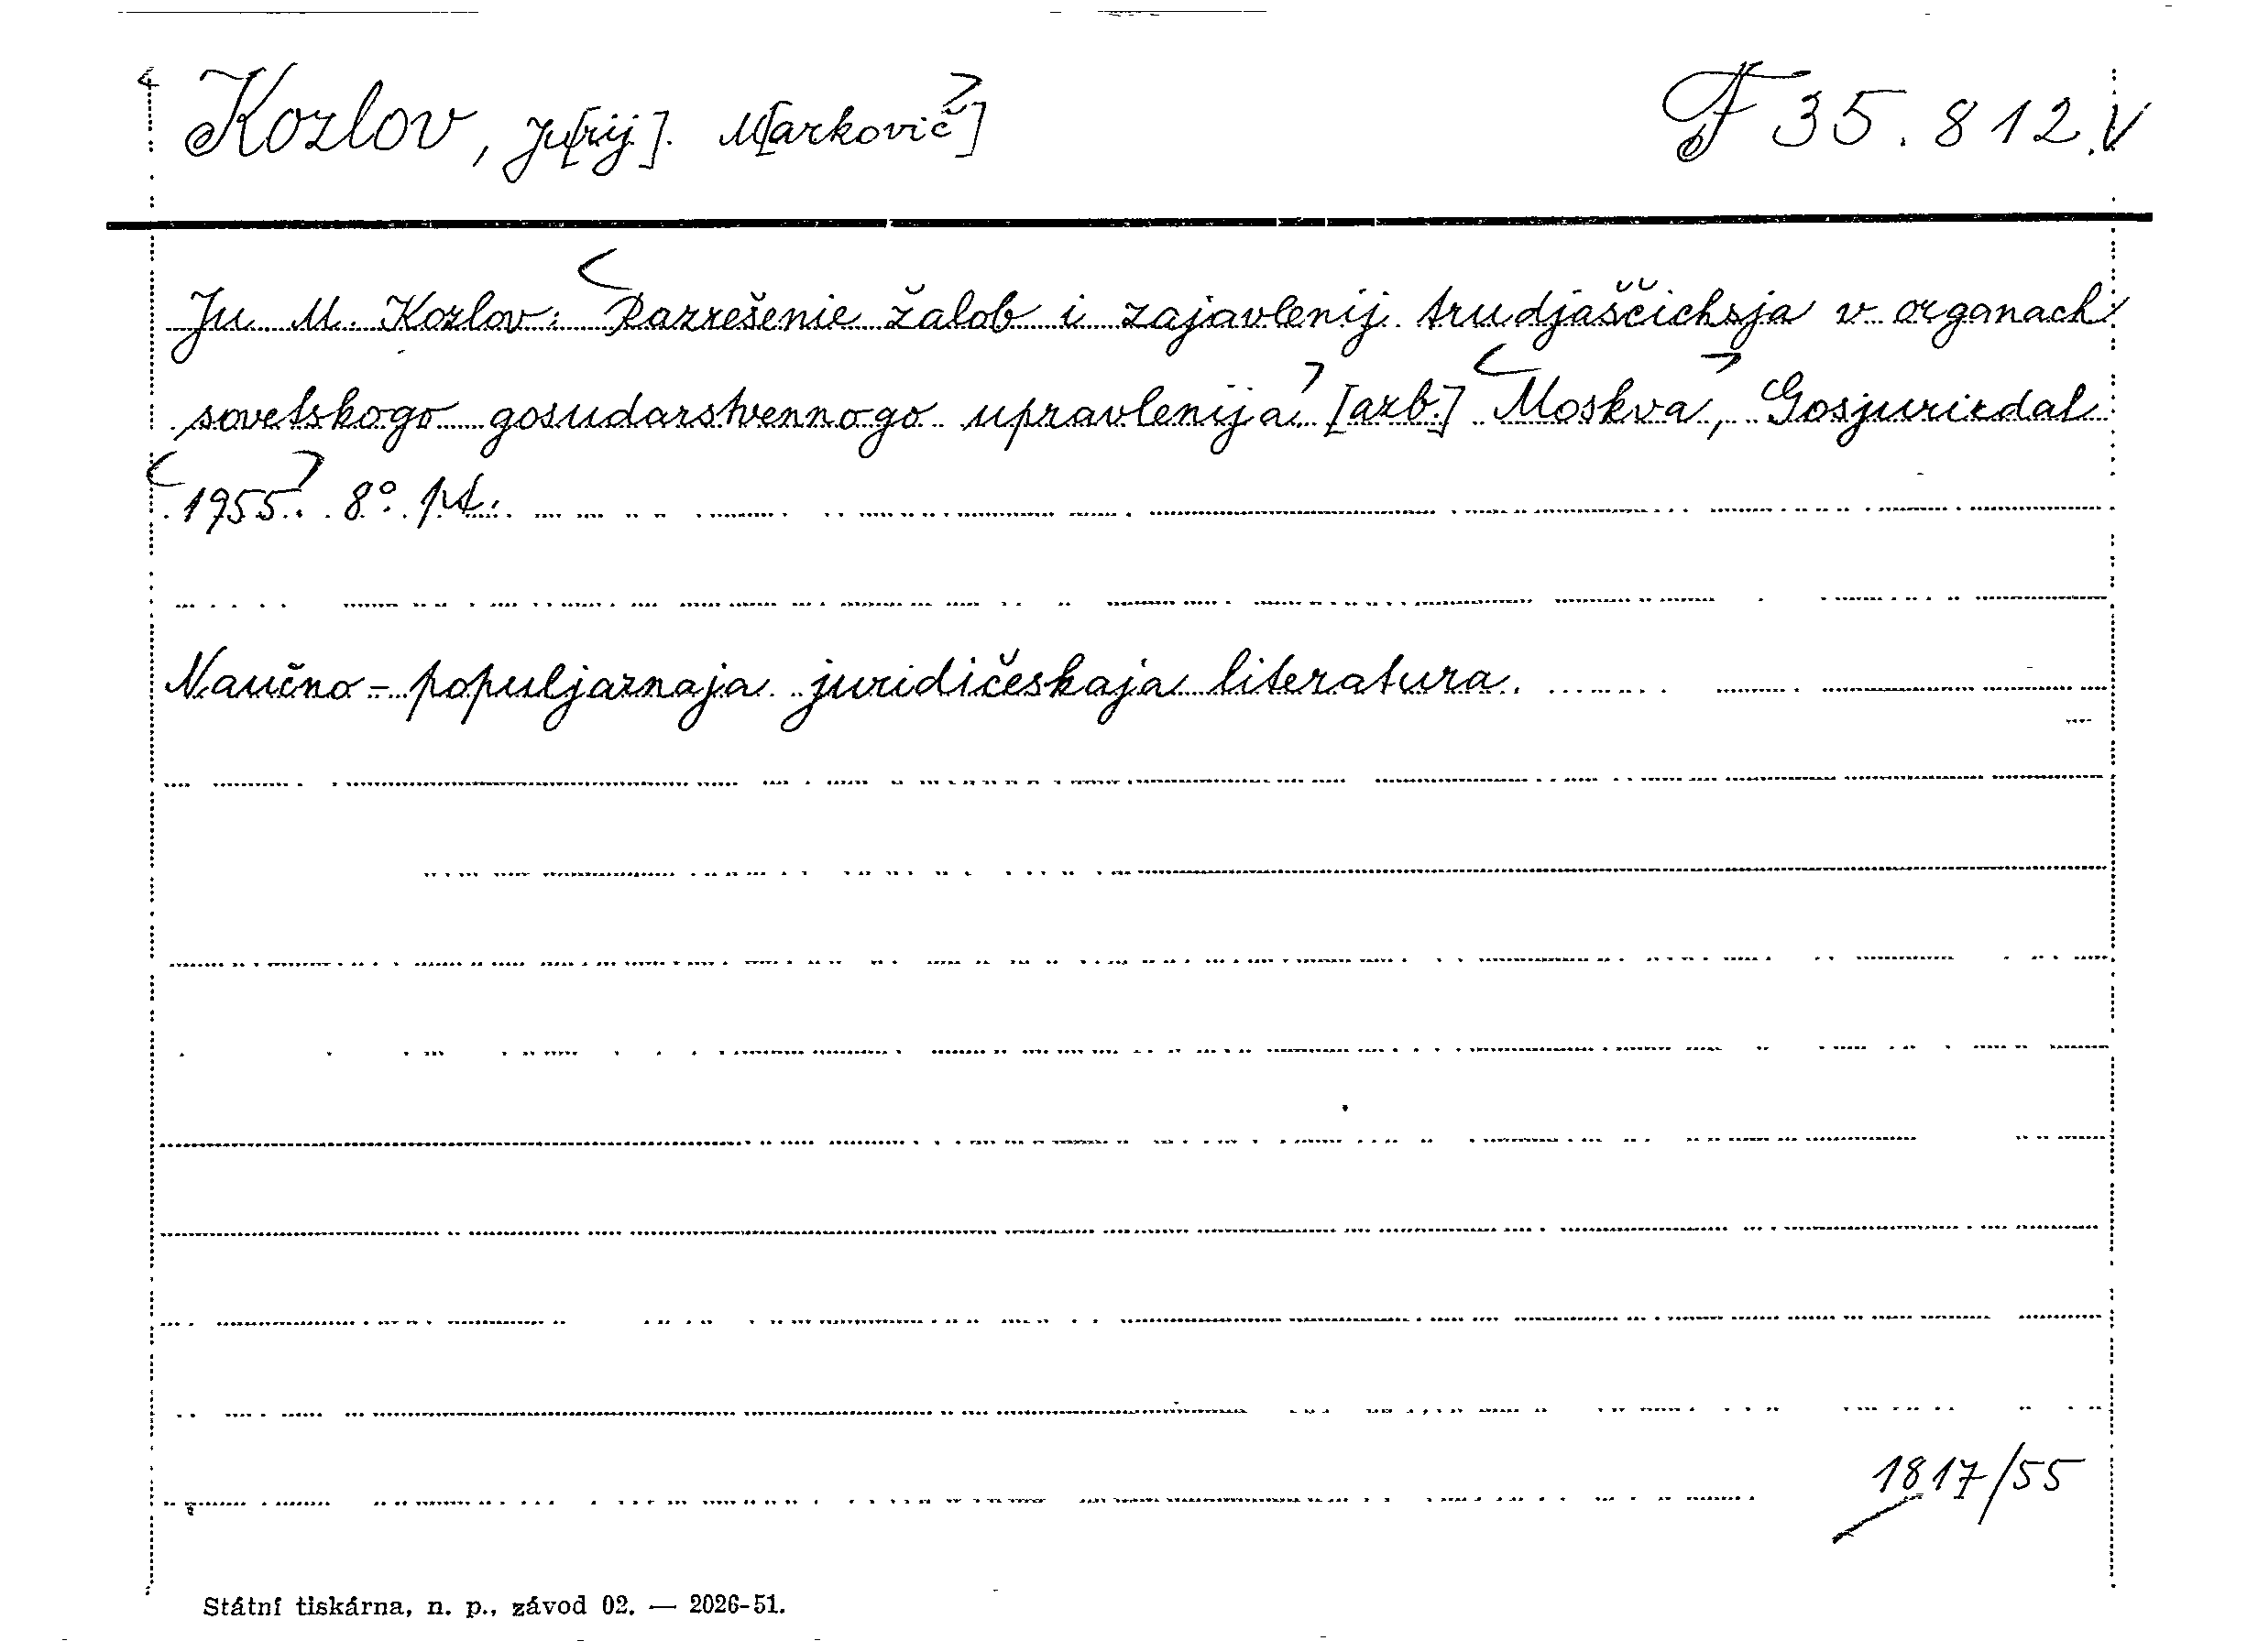 Kozlov, Ju[rij]. M[arkovič] F 35.812.V
Ju. M. Kozlov: Razrešenie žalob i zajavlenij trudjaščichsja v organach
sovetskogo gosudarstvennogo upravlenija [azb.] Moskva, Gosjurizdat
1955. 8°. pt.
Naučno-populjarnaja juridičeskaja literatura.
1817/55
Státní tiskárna, n. p., závod 02. — 2026-51.